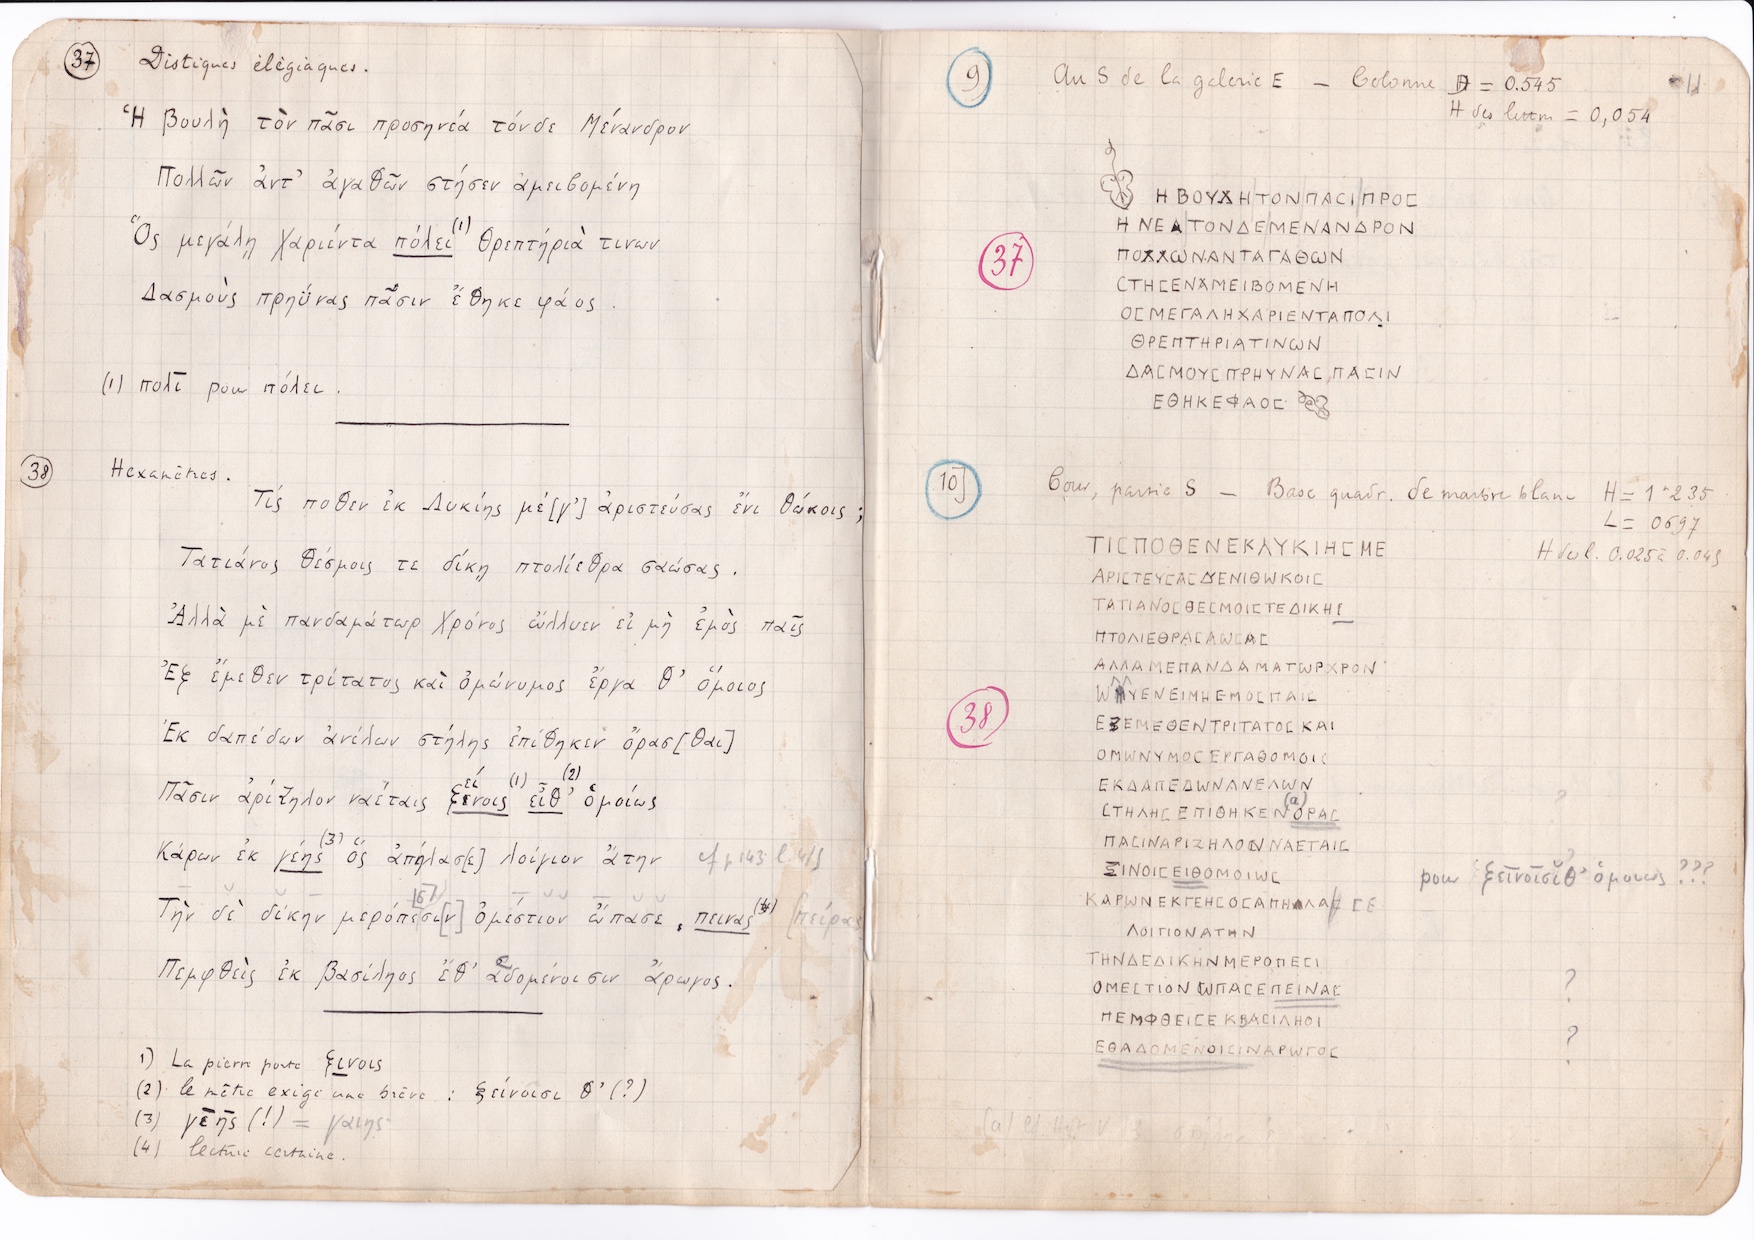 37 Distiques élégiaques.
Ἡ βουλὴ τὸν πᾶσι προσηνέα τόνδε Μένανδρον
Πολλῶν ἀντ' ἀγαθῶν στήσεν ἀμειβομένη
Ὅς μεγάλῃ χαριέντα πόλει (1) θρεπτήριὰ τινων
Δασμοὺς πρηΰνας πᾶσιν ἔθηκε φάος.
(1) πολῑ pour πόλει.
38 Hexamètres.
Τίς ποθεν ἐκ Λυκίης μέ[γ'] ἀριστεύσας ἔνι θώκοις;
Τατιάνος θέσμοις τε δίκῃ πτολίεθρα σαώσας.
Ἀλλὰ μὲ πανδαμάτωρ χρόνος ὤλλυεν εἰ μὴ ἐμὸς παῖς
Ἐξ ἔμεθεν τρίτατος καὶ ὁμώνυμος ἔργα θ' ὅμοιος
Ἐκ δαπέδων ἀνέλων στήλης ἐπίθηκεν ὅρασ[θαι]
Πᾶσιν ἀρίζηλον ναέταις ξείνοις (1) εἶθ' (2) ὁμοίως
Κάρων ἐκ γέης (3) ὅς ἀπήλασ[ε] λοίγιον ἄτην cf p 143 l. 4/5
Τὴν δὲ δίκην μερόπεσι[ν] ὁμέστιον ὤπασε, πεινας (4) [πείρας
Πεμφθεὶς ἐκ βασίληος ἔθ' ἁδομένοισιν ἄρωγος.
1) La pierre porte ξινοις
(2) le mètre exige une brève : ξείνοισι θ' (?)
(3) γε̄η̄ς (!) = γαιης
(4) lecture certaine.
9 Au S de la galerie E — Colonne D = 0.545
11
H des lettres = 0,054
37
Η ΒΟΥΛΗΤΟΝΠΑСΙΠΡΟС
ΗΝΕΑΤΟΝΔΕΜΕΝΑΝΔΡΟΝ
ΠΟΛΛΩΝΑΝΤΑΓΑΘΩΝ
СΤΗСΕΝΑΜΕΙΒΟΜΕΝΗ
ΟСΜΕΓΑΛΗΧΑΡΙΕΝΤΑΠΟΛΙ
ΘΡΕΠΤΗΡΙΑΤΙΝΩΝ
ΔΑСΜΟΥСΠΡΗΥΝΑС ΠΑСΙΝ
ΕΘΗΚΕΦΑΟС
10] Cour, partie S — Base quadr. de marbre blanc H = 1ᵐ235
L = 0697
H des l. 0.025 à 0.045
38
ΤΙСΠΟΘΕΝΕΚΛΥΚΙΗСΜΕ
ΑΡΙСΤΕΥСΑСΕΝΙΘΩΚΟΙС
ΤΑΤΙΑΝΟСΘΕСΜΟΙСΤΕΔΙΚΗС
ΠΤΟΛΙΕΘΡΑСΑΩСΑС
ΑΛΛΑΜΕΠΑΝΔΑΜΑΤΩΡΧΡΟΝ
ΩΛΛΥΕΝΕΙΜΗΕΜΟСΠΑΙС
ΕΞΕΜΕΘΕΝΤΡΙΤΑΤΟСΚΑΙ
ΟΜΩΝΥΜΟСΕΡΓΑΘΟΜΟΙС
ΕΚΔΑΠΕΔΩΝΑΝΕΛΩΝ
СΤΗΛΗСΕΠΙΘΗΚΕΝ (a) ΟΡΑС ?
ΠΑСΙΝΑΡΙΖΗΛΟΝΝΑΕΤΑΙС ?
ΞΙΝΟΙСΕΙΘΟΜΟΙΩС pour ξεῑνοῑσῐ θ' ὁμοιως ???
ΚΑΡΩΝΕΚΓΕΗСΟСΑΠΗΛΑСΕ
ΛΟΙΓΙΟΝΑΤΗΝ
ΤΗΝΔΕΔΙΚΗΝΜΕΡΟΠΕСΙ
ΟΜΕСΤΙΟΝΩΠΑСΕΠΕΙΝΑС ?
ΠΕΜΦΘΕΙСΕΚΒΑСΙΛΗΟΙ
ΕΘΑΔΟΜΕΝΟΙСΙΝΑΡΩΓΟС ?
(a) cf